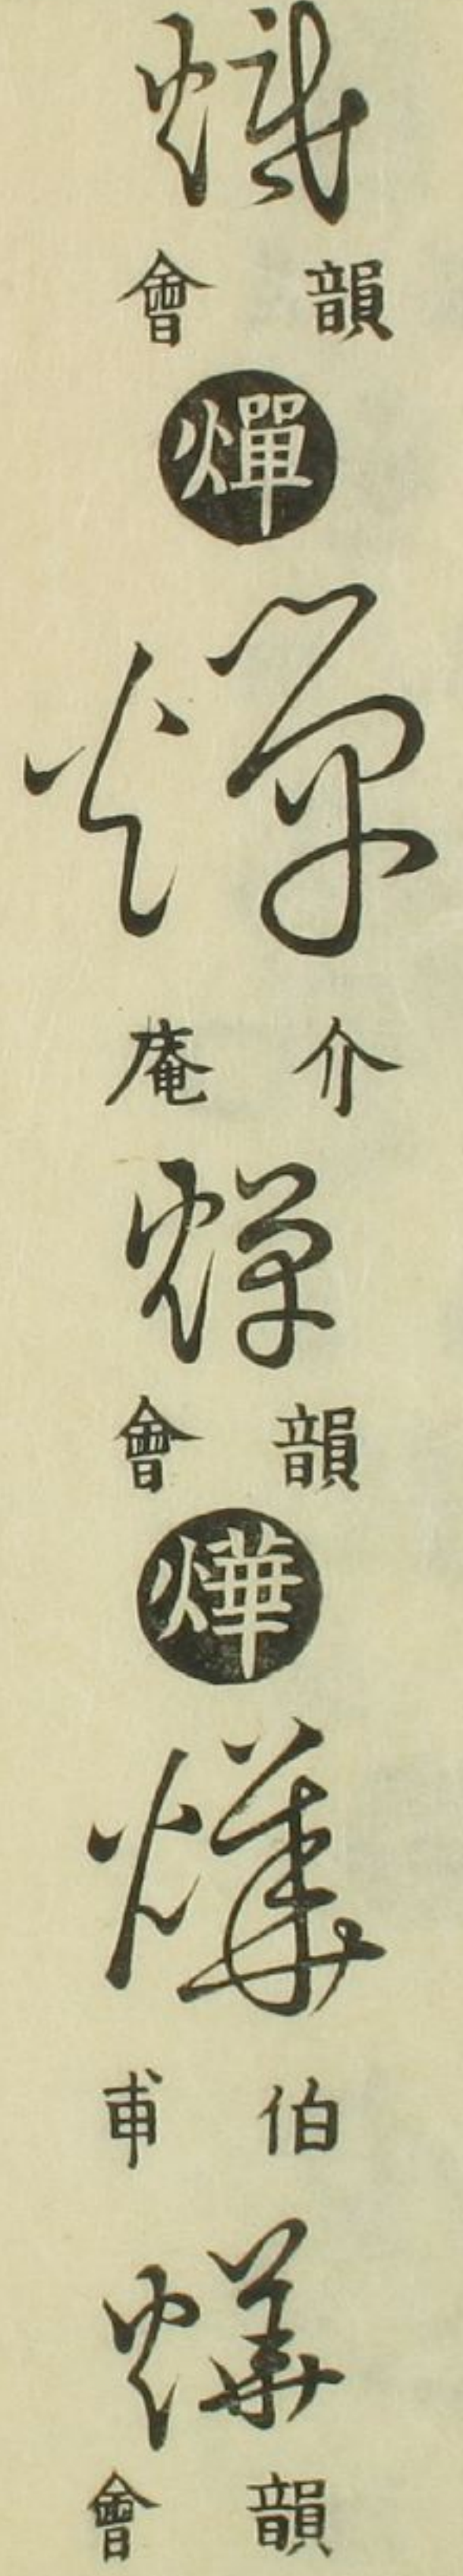 熾
韻會
燀
燀
介庵
燀
韻會
燁
燁
伯甫
燁
韻會